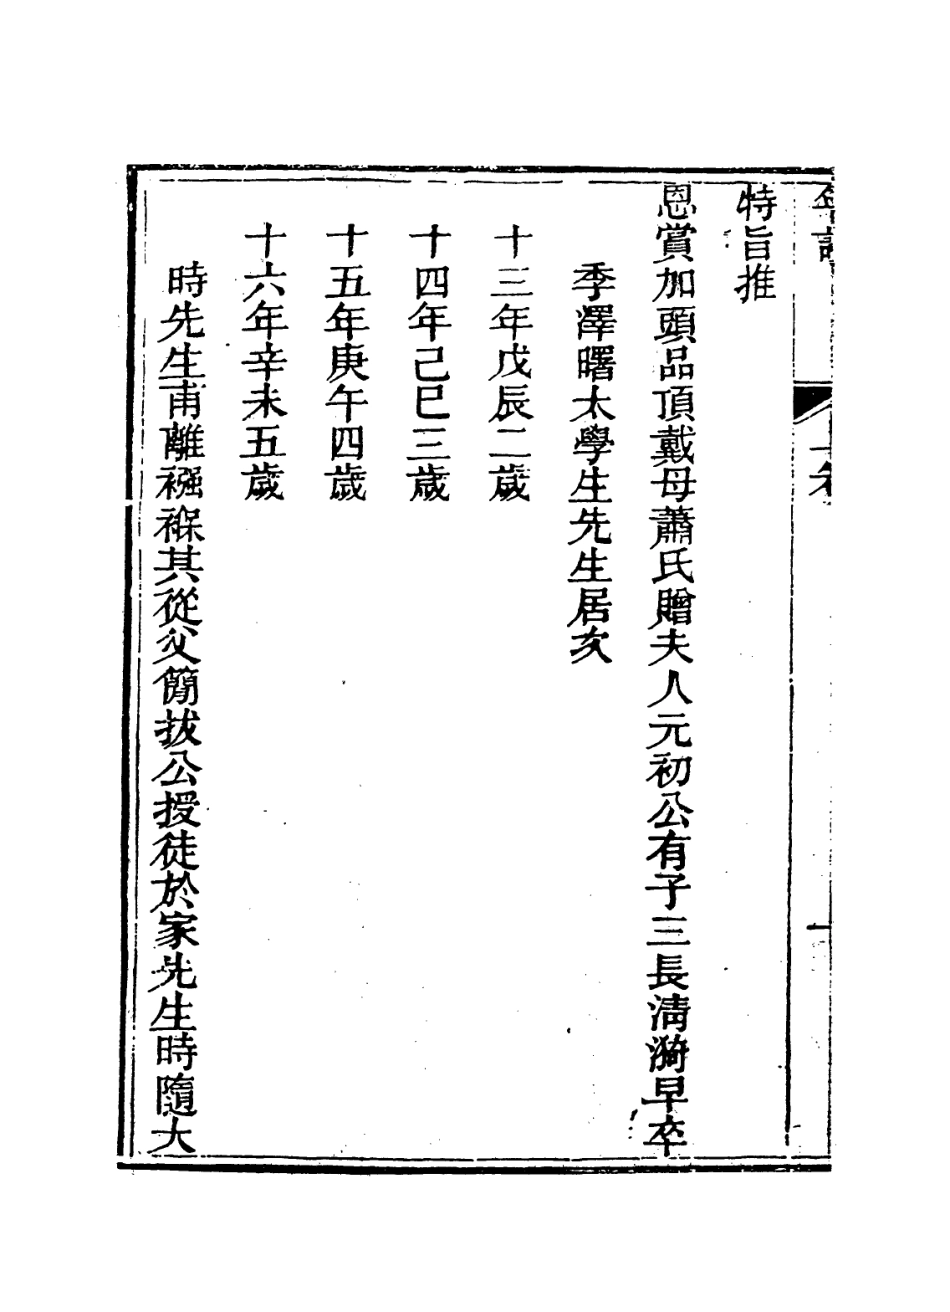 年譜
一
特旨推
恩賞加頭品頂戴母蕭氏贈夫人元初公有子三長淸漪早卒
季澤曙太學生先生居次
十三年戊辰二歲
十四年己巳三歲
十五年庚午四歲
十六年辛未五歲
時先生甫離襁褓其從父簡拔公授徒於家先生時隨大